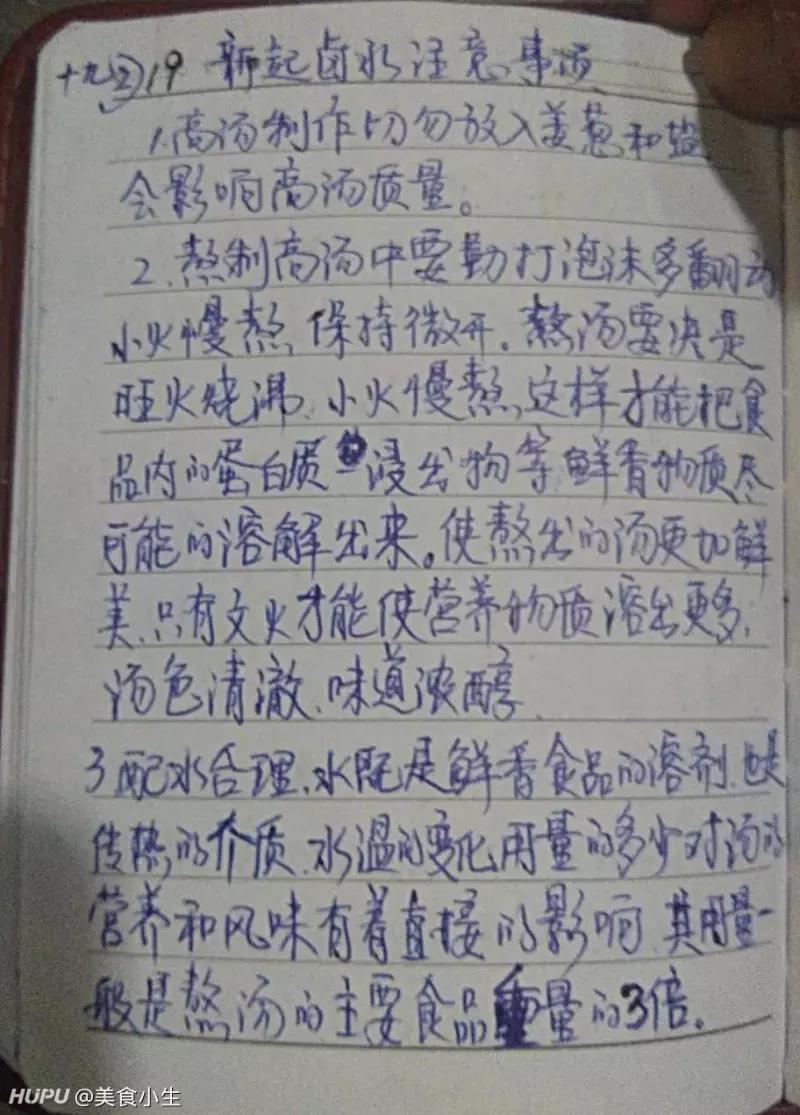 十九 19 新起卤水注意事项
1.高汤制作切勿放入姜葱和盐
会影响高汤质量。
2、熬制高汤中要勤打泡沫多翻动
小火慢熬、保持微开。熬汤要决是
旺火烧沸、小火慢熬、这样才能把食
品内的蛋白质浸出物等鲜香物质尽
可能的溶解出来。使熬出的汤更加鲜
美、只有文火才能使营养物质溶出更多、
汤色清澈、味道浓醇
3配水合理、水既是鲜香食品的溶剂、也是
传热的介质、水温的变化、用量的多少对汤的
营养和风味有着直接的影响、其用量一
般是熬汤的主要食品重量的3倍。
HUPU @美食小生